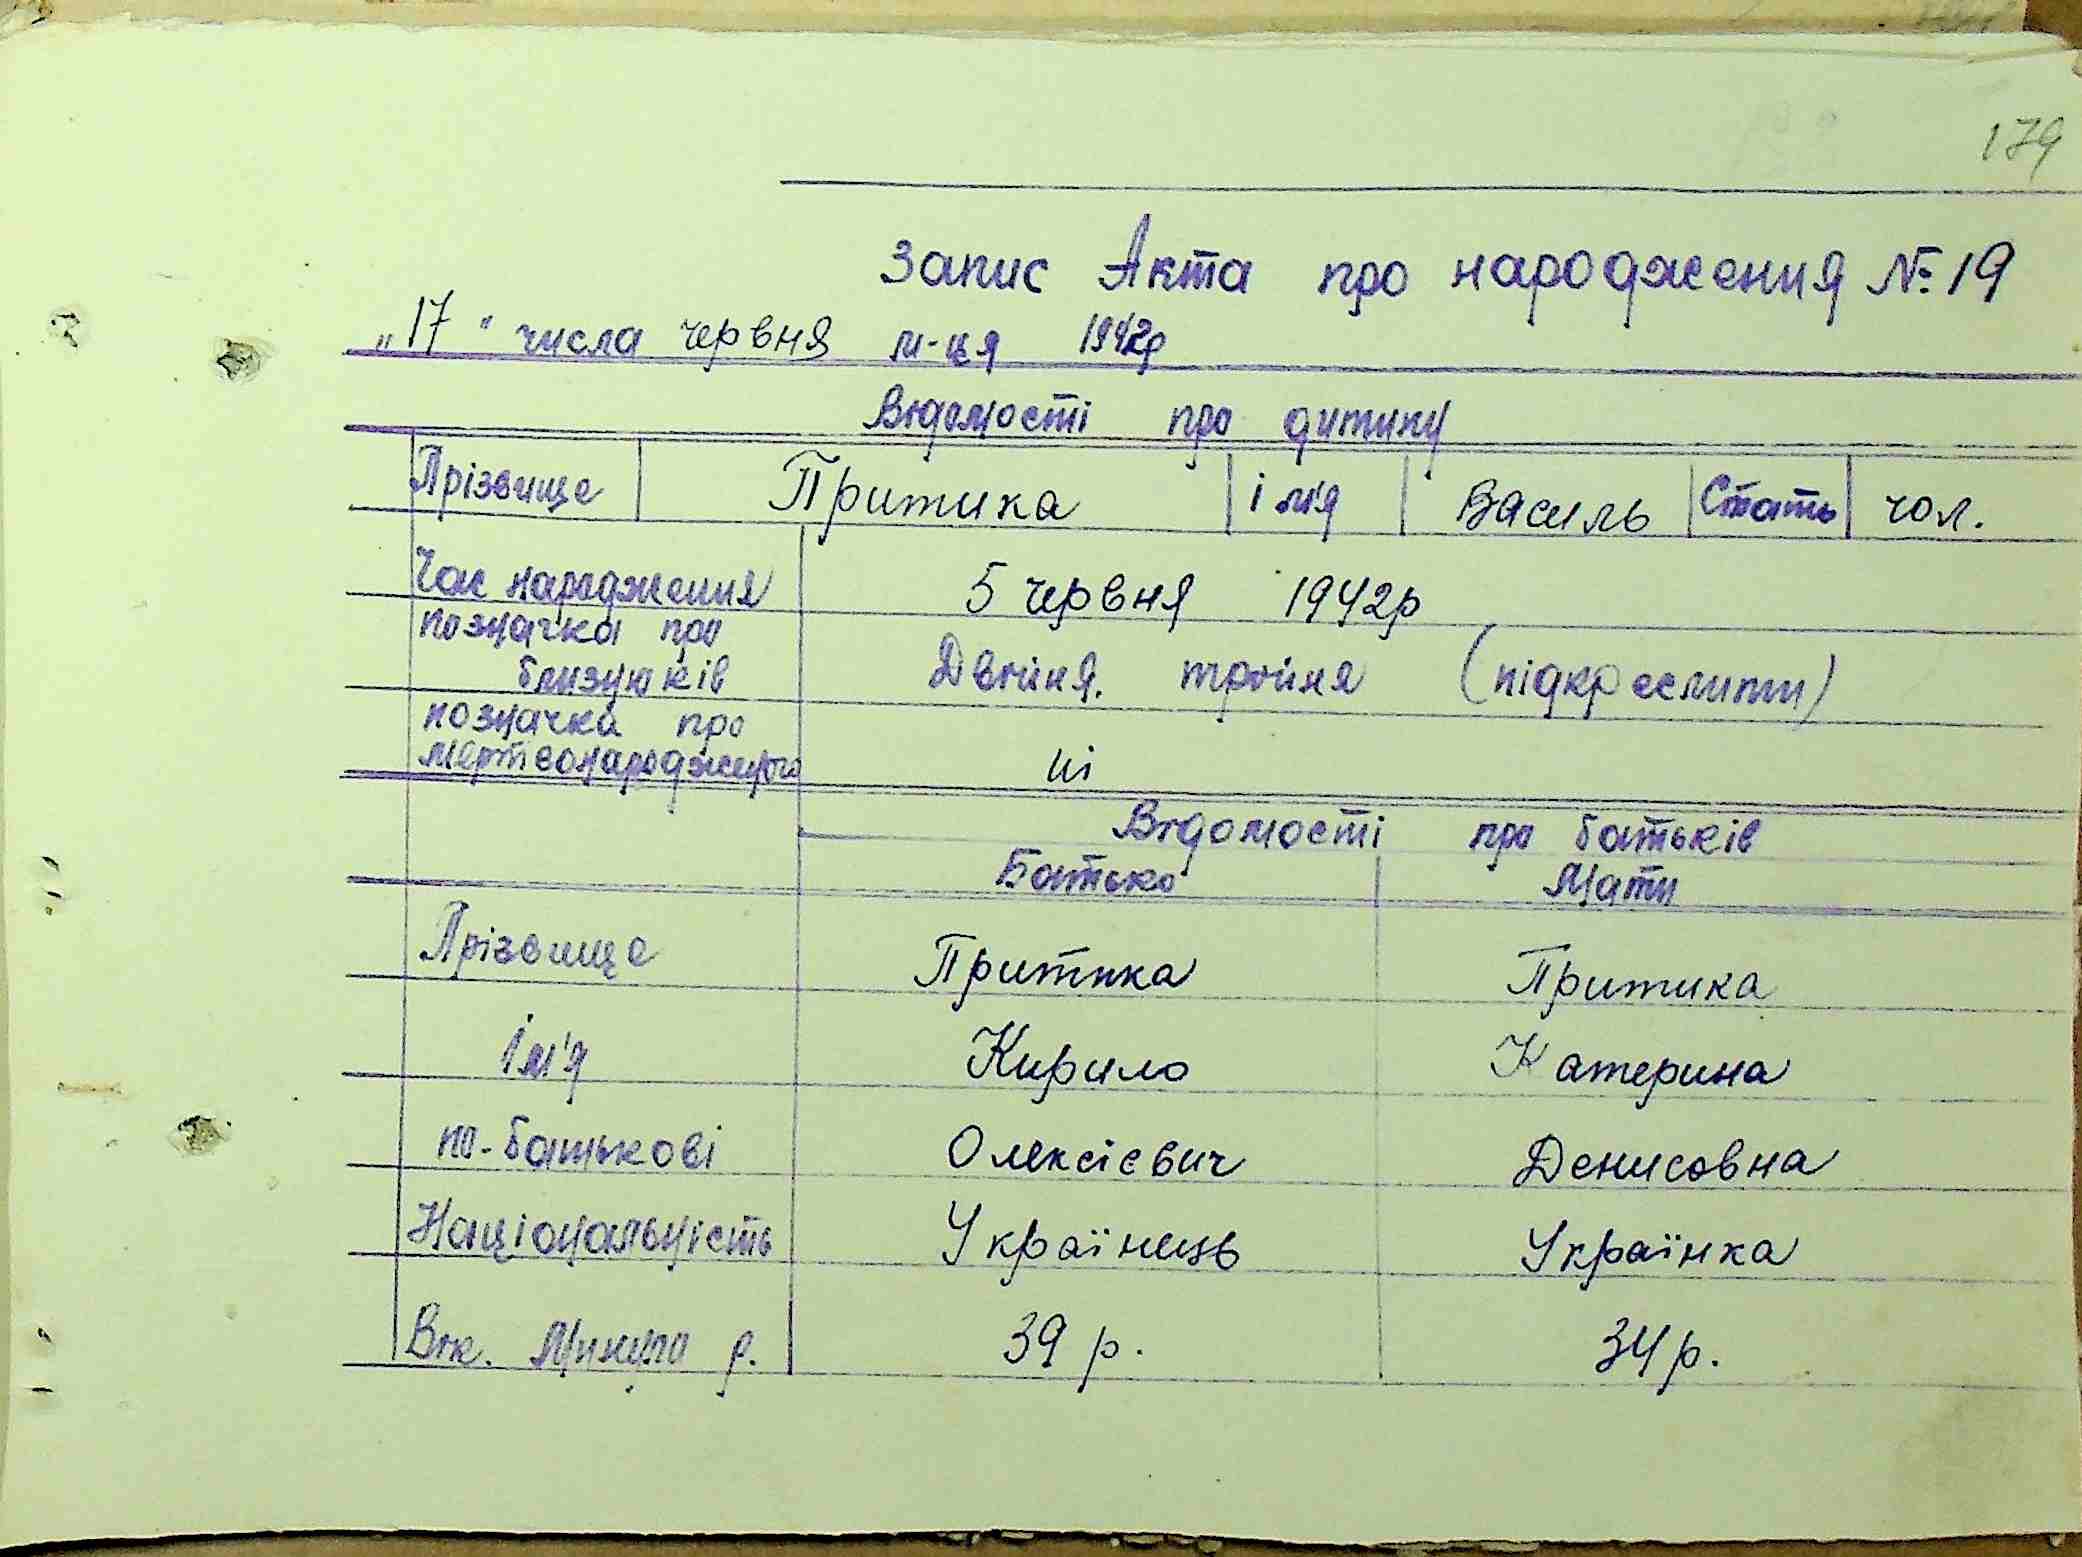 179
Запис Акта про народження № 19
„17" числа червня м-ця 1942р
Відомості про дитину
Прізвище Притика і м'я Василь Стать чол.
Час народження 5 червня 1942р
позначка про
близнюків Двойня. тройня (підкреслити)
позначка про
мертвонародженого ні
Відомості про батьків
Батько Мати
Прізвище Притика Притика
Ім'я Кирило Катерина
по-батькові Олексієвич Денисовна
Національність Українець Українка
Вік. Минуло р. 39 р. 34 р.